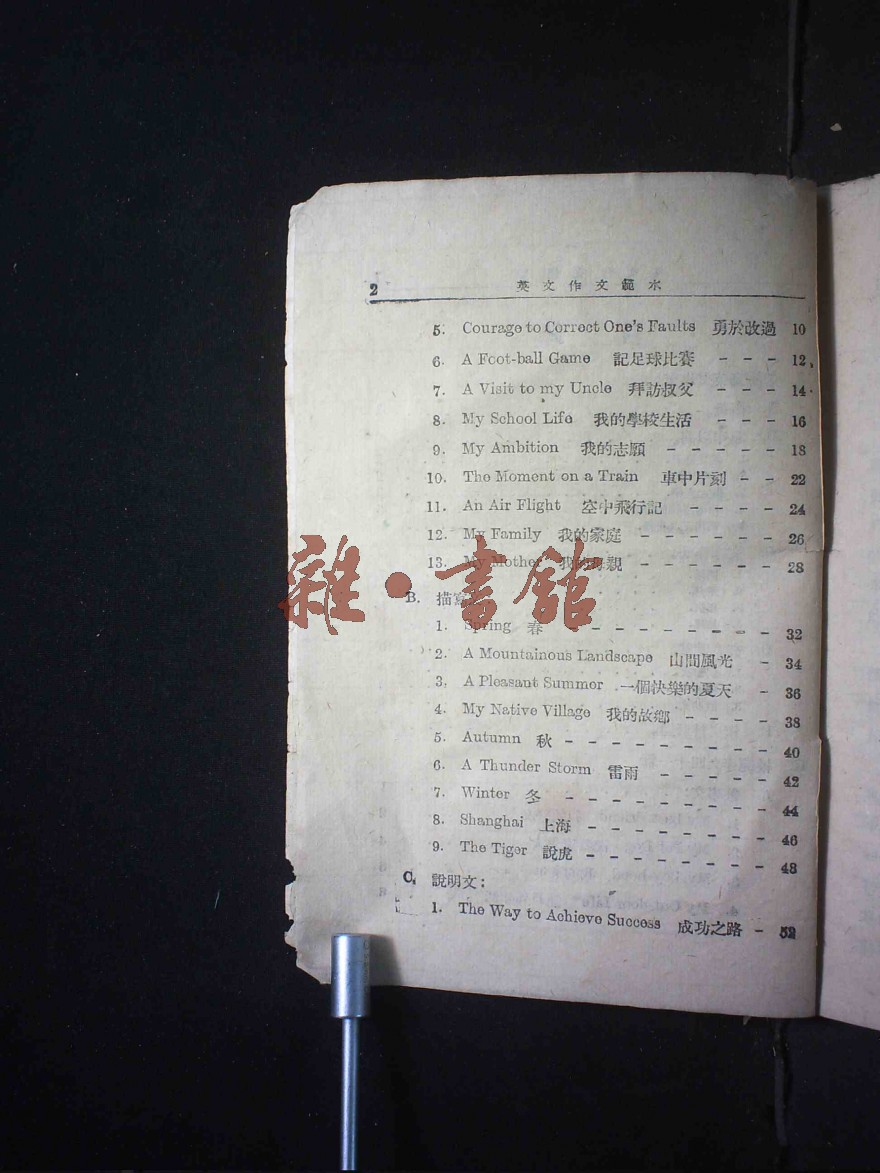 2 英文作文範本
5. Courage to Correct One's Faults 勇於改過 10
6. A Foot-ball Game 記足球比賽 - - - 12
7. A Visit to my Uncle 拜訪叔父 - - - 14
8. My School Life 我的學校生活 - - - 16
9. My Ambition 我的志願 - - - - - 18
10. The Moment on a Train 車中片刻 - - 22
11. An Air Flight 空中飛行記 - - - - 24
12. My Family 我的家庭 - - - - - - 26
13. My Mother 我的母親 - - - - - - 28
B. 描寫
1. Spring 春 - - - - - - - - 32
2. A Mountainous Landscape 山間風光 - 34
3. A Pleasant Summer 一個快樂的夏天 - 36
4. My Native Village 我的故鄉 - - - - 38
5. Autumn 秋 - - - - - - - - - 40
6. A Thunder Storm 雷雨 - - - - - 42
7. Winter 冬 - - - - - - - - - 44
8. Shanghai 上海 - - - - - - - - 46
9. The Tiger 說虎 - - - - - - - - 48
C. 說明文:
1. The Way to Achieve Success 成功之路 - 52
雜·書館